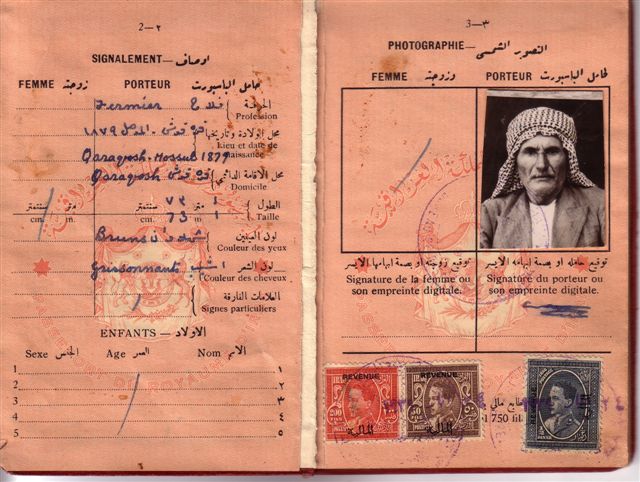 2-٢
SIGNALEMENT — اوصاف
FEMME زوجته PORTEUR حامل الباسبورت
Fermier فلاح المهنة
Profession
محل الولادة وتاريخها ١٨٧٩
Lieu et date de
naissance
Qaraqosh-Mossul 1879
Qaraqosh محل الاقامة الدائمي
Domicile
متر سنتمتر متر سنتمتر الطول
cm. m. cm. m. Taille
1 73
Bruns لون العينين
Couleur des yeux
Grisonnants لون الشعر
Couleur des cheveux
العلامات الفارقة
Signes particuliers
ENFANTS — الاولاد
Sexe الجنس Age العمر Nom الاسم
1 ١
2 ٢
3 ٣
4 ٤
5 ٥
PASSEPORT DU ROYAUME
3-٣
PHOTOGRAPHIE — التصوير الشمسي
FEMME وزوجته PORTEUR حامل الباسبورت
توقيع زوجته او بصمة ابهامها الايسر
Signature de la femme ou
son empreinte digitale.
توقيع حامله او بصمة ابهامه الايسر
Signature du porteur ou
son empreinte digitale.
REVENUE
200
المالية
REVENUE
50
المالية
طابع مالي
750 fil